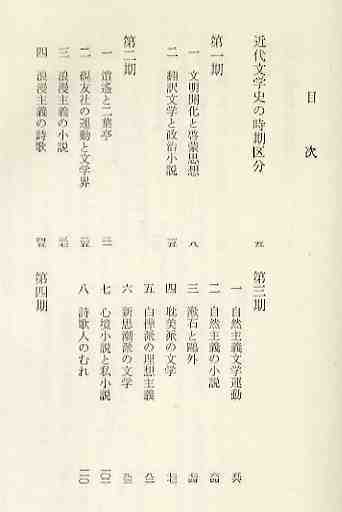 目次
近代文学史の時期区分 五
第一期
一 文明開化と啓蒙思想 八
二 翻訳文学と政治小説
第二期
一 逍遙と二葉亭
二 硯友社の運動と文学界
三 浪漫主義の小説
四 浪漫主義の詩歌
第三期
一 自然主義文学運動
二 自然主義の小説
三 漱石と鴎外
四 耽美派の文学
五 白樺派の理想主義
六 新思潮派の文学
七 心境小説と私小説 一〇一
八 詩歌人のむれ 一一〇
第四期